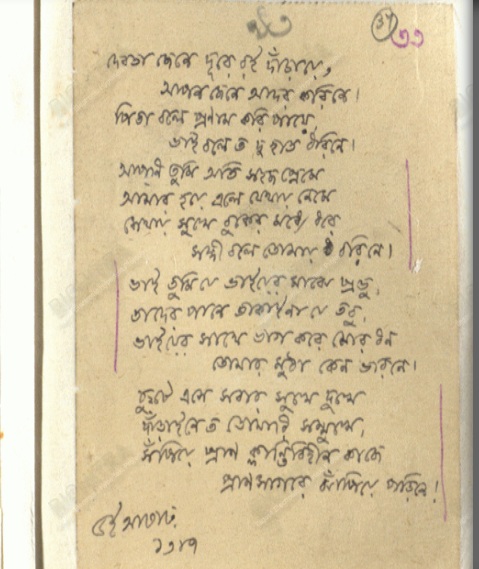 37 ৩৩
দেবতা জেনে দূরে রই দাঁড়ায়ে,
আপন জেনে আদর করিনে।
পিতা বলে প্রণাম করি পায়ে,
ভাই বলে ত দু হাত ধরিনে।
আপনি তুমি অতি সহজ প্রেমে
আমার হয়ে এলে যেথায় নেমে
সেথায় সুখে বুকের মধ্যে ধরে
সঙ্গী বলে তোমায় বরিনে।
ভাই তুমি যে ভাইয়ের মাঝে প্রভু,
তাদের পানে তাকাইনা যে তবু,
ভাইয়ের সাথে ভাগ করে মোর ধন
তোমার মুঠা কেন ভরিনে।
ছুটে এসে সবার সুখে দুখে
দাঁড়াইনে ত তোমারি সম্মুখে,
সঁপিয়ে প্রাণ ক্লান্তিবিহীন কাজে
প্রাণসাগরে ঝাঁপিয়ে পড়িনে!
৫ই আষাঢ়
১৩১৭